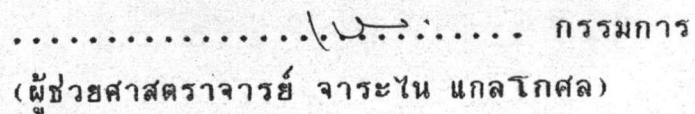 ............................ กรรมการ
(ผู้ช่วยศาสตราจารย์ จาระไน แกลโกศล)